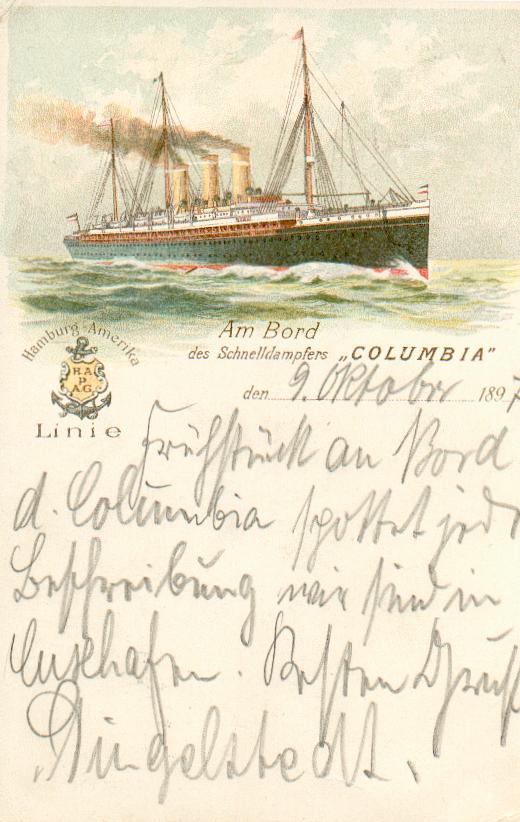 Am Bord
des Schnelldampfers „COLUMBIA"
Hamburg-Amerika
H.A.
P.
A.G.
Linie
den 9. Oktober 1897
Frühstück an Bord
d. Columbia spottet jede
Beschreibung wir sind in
Cuxhafen. Besten Gruß